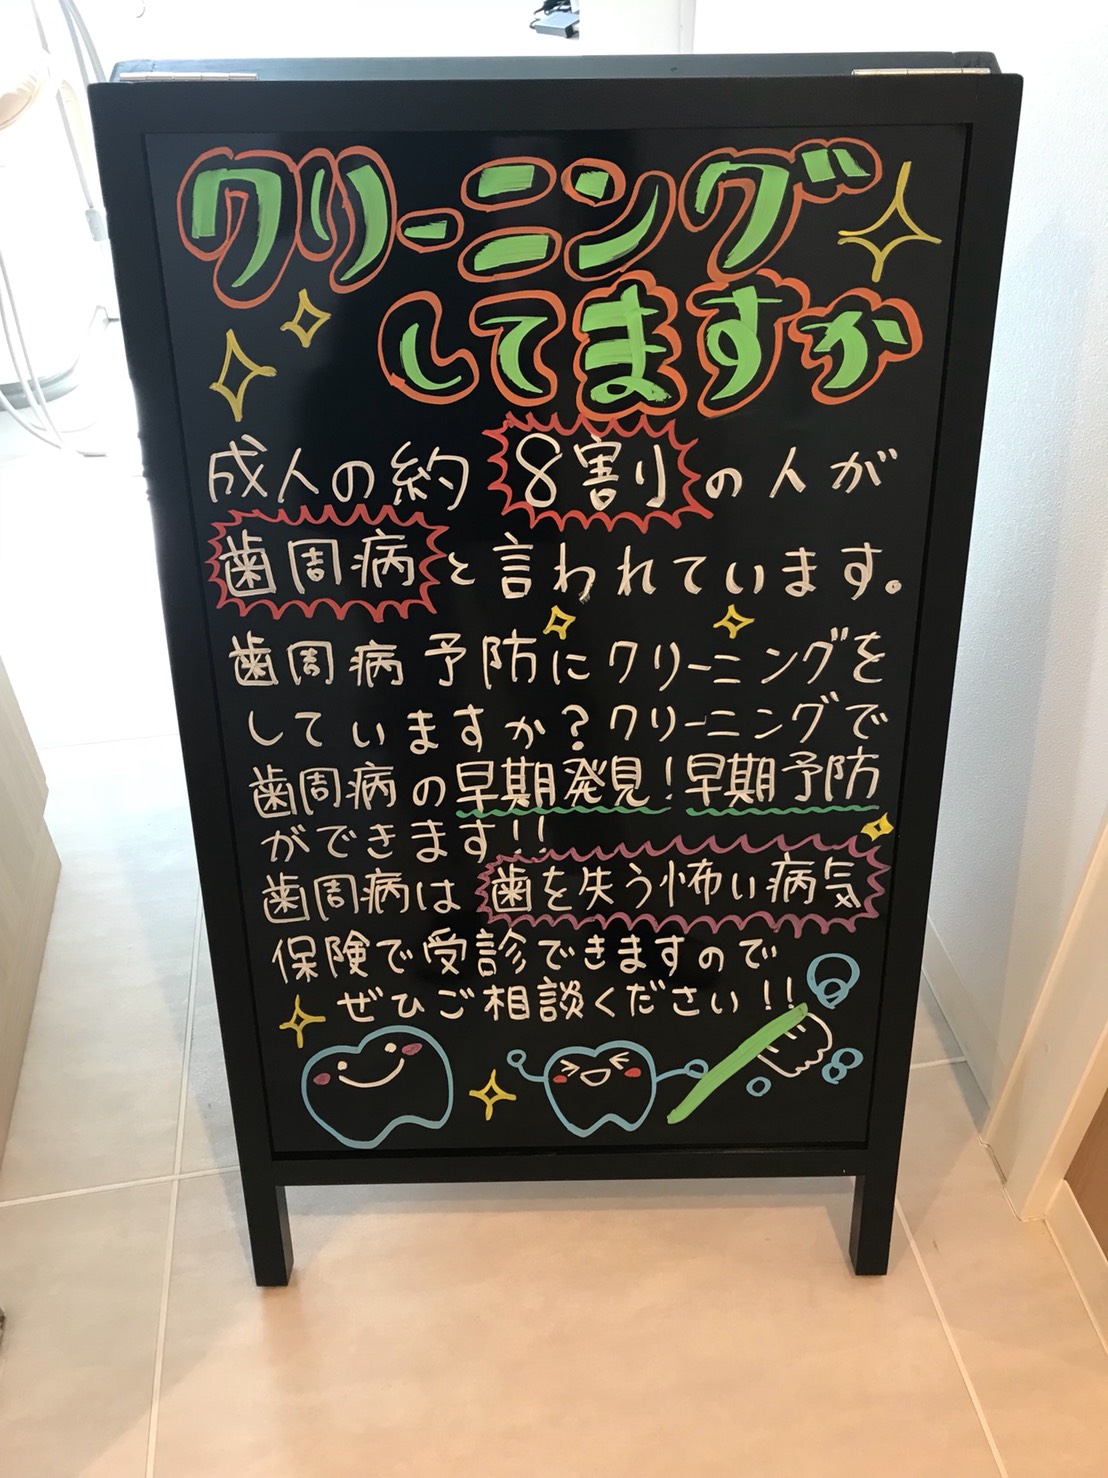 クリーニング
してますか
成人の約8割の人が
歯周病と言われています。
歯周病予防にクリーニングを
していますか？クリーニングで
歯周病の早期発見！早期予防
ができます!!
歯周病は歯を失う怖い病気
保険で受診できますので
ぜひご相談ください!!